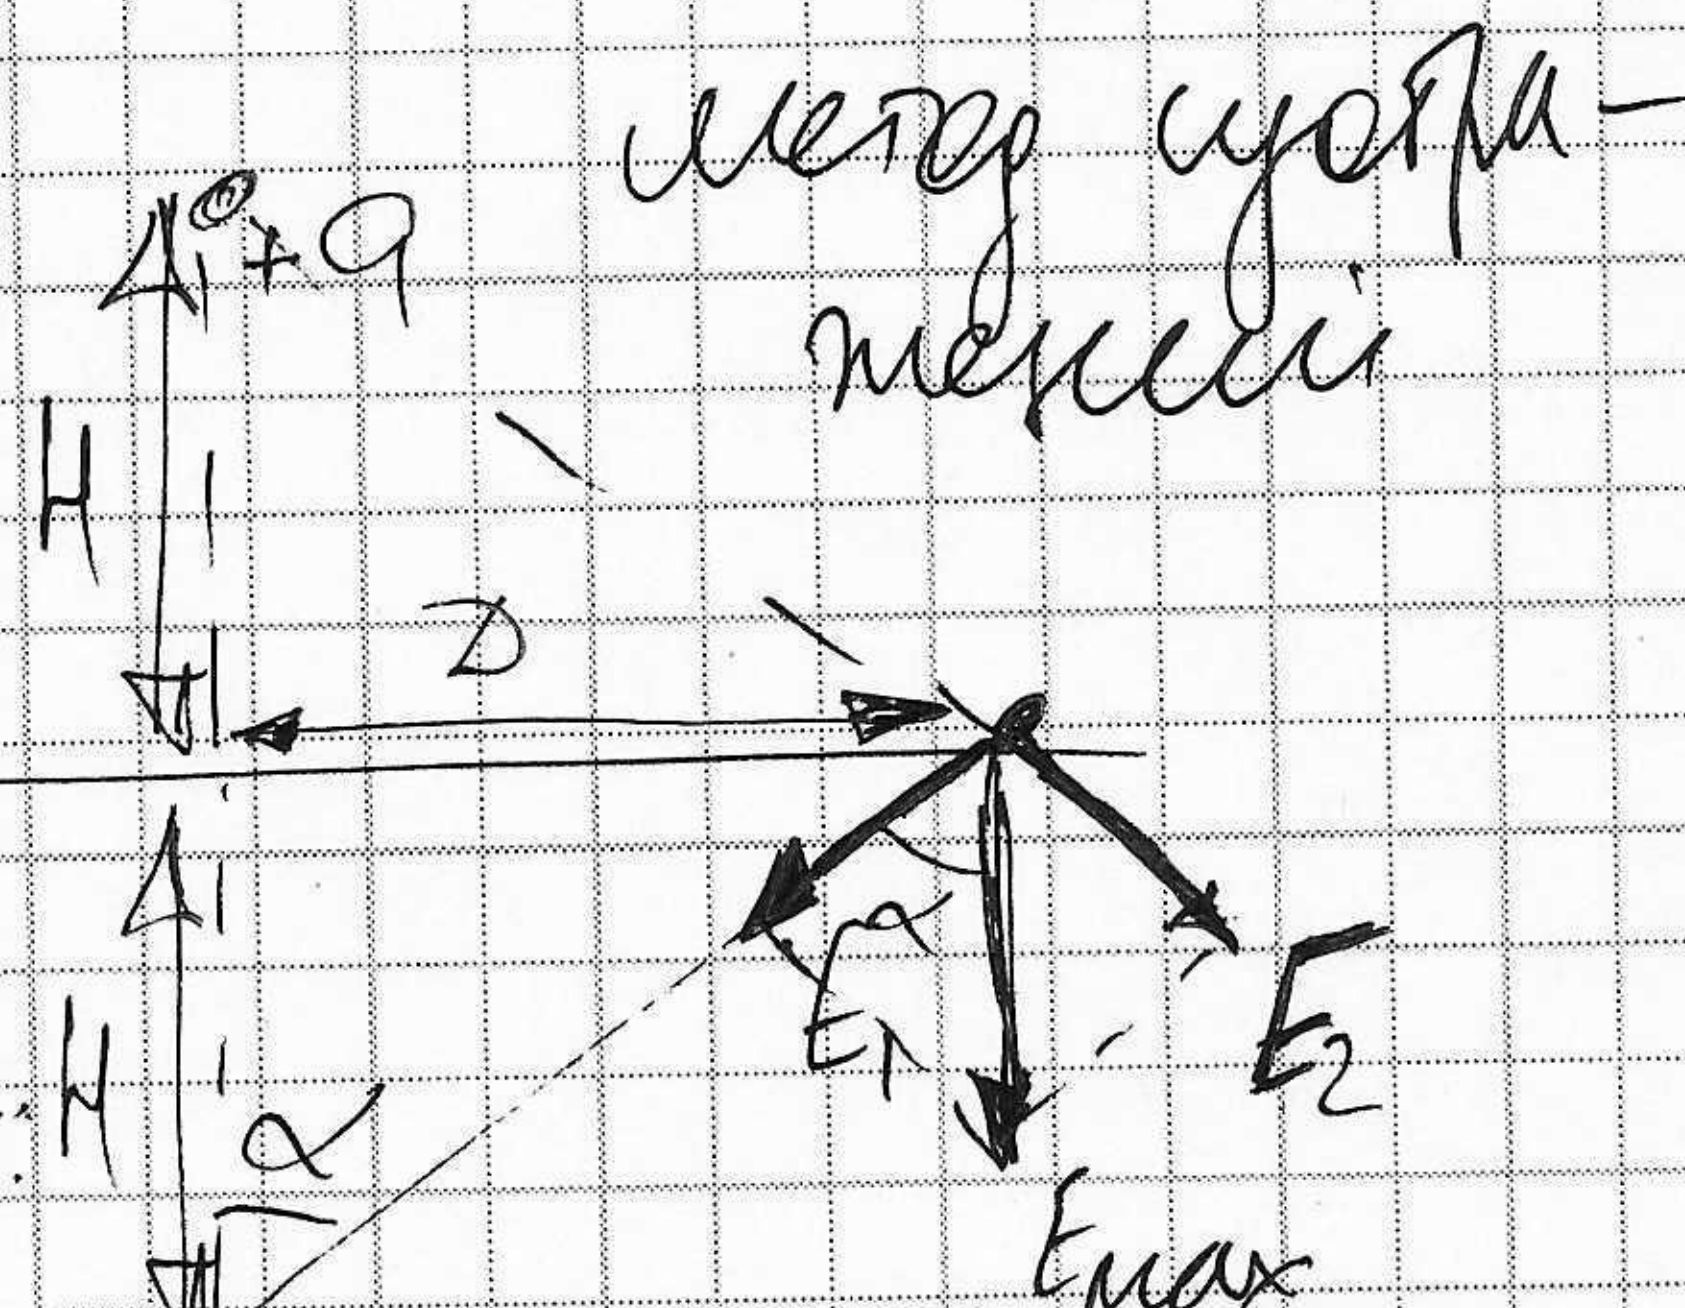 метод изобра-
жений
+ q
H
D
α
E1
H
E2
α
Emax